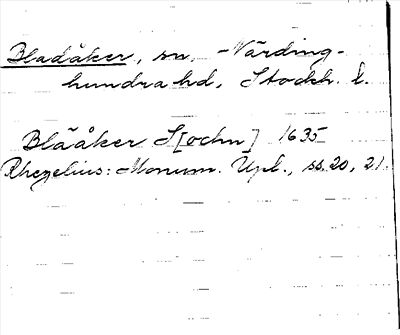 Bladåker, sn, -Närding-
hundra hd, Stockh. l.
Blååker S[ochn] 1635
Rhezelius: Monum. Upl., ss. 20, 21.